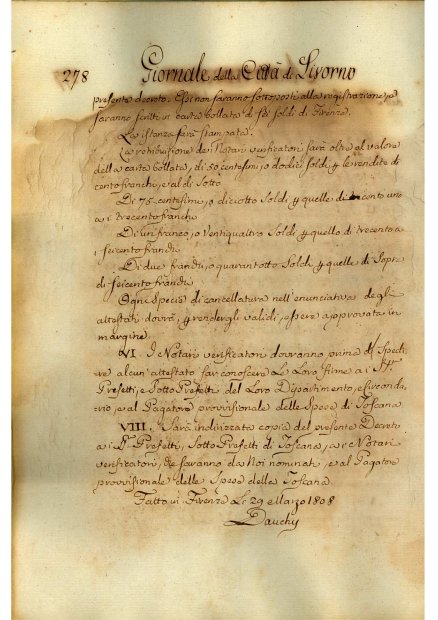 278 Giornale della Città di Livorno
presente decreto. Essi non saranno sottoposti alla registrazione, e
saranno scritti in carta bollata di sei soldi di Firenze.
La istanza sarà stampata.
La retribuzione de Notari verificatori sarà oltre al valore
della carta bollata, di 50 centesimi, o dodici soldi p le rendite di
cento franchi, e al di sotto
Di 75 centesimi, o diciotto Soldi p quelle di cento uno
a i trecento franchi
Di un franco, o Ventiquattro Soldi p quello di trecento a
i seicento franchi
Di due franchi, o quarantotto Soldi p quelle di Sopra
di seicento franchi
Ogni Specie di cancellatura nell'enunciativa degli
attestati dovrà, p rendergli validi, essere approvata in
margine.
VI. I Notari verificatori dovranno prima di Spedi-
re alcun'attestato far conoscere Le Loro firme a i SS.
Prefetti, e Sotto Prefetti del Loro Dipartimento, e circonda-
rio, e al Pagatore provvisionale delle Spese di Toscana
VIII. Sarà indirizzato copia del presente Decreto
a i SS. Prefetti, Sotto Prefetti di Toscana, a i Notari
verificatori, che saranno da Noi nominati, e al Pagatore
provvisionale delle Spese della Toscana.
Fatto in Firenze Li 29 Marzo 1808
Dauchy